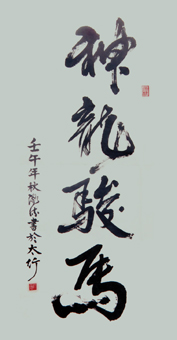 神龍駿馬
壬午年秋
書於太行